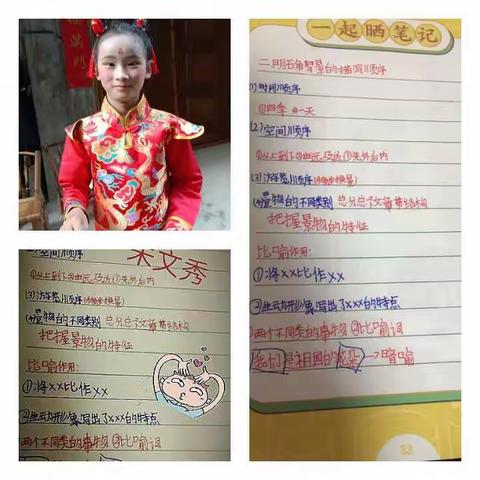 福满门
一起晒笔记
二、明确写景的描写顺序
(1)时间顺序
①四季 ②一天
(2)空间顺序
①从上到下②由远及近③先外后内
(3)游览顺序(移步换景)
(4)景物的不同类别 总分总了文章节结构
把握景物的特征
比喻作用:
①将××比作××
②生动形象写出了×××的特点
两个不同类的事物 ②比喻词
我们是祖国的花朵→暗喻
33
空间顺序
宋文秀
①从上到下②由远及近③先外后内
(3)游览顺序(移步换景)
(4)景物的不同类别 总分总了文章节结构
把握景物的特征
比喻作用:
①将××比作××
②生动形象写出了×××的特点
两个不同类的事物②比喻词